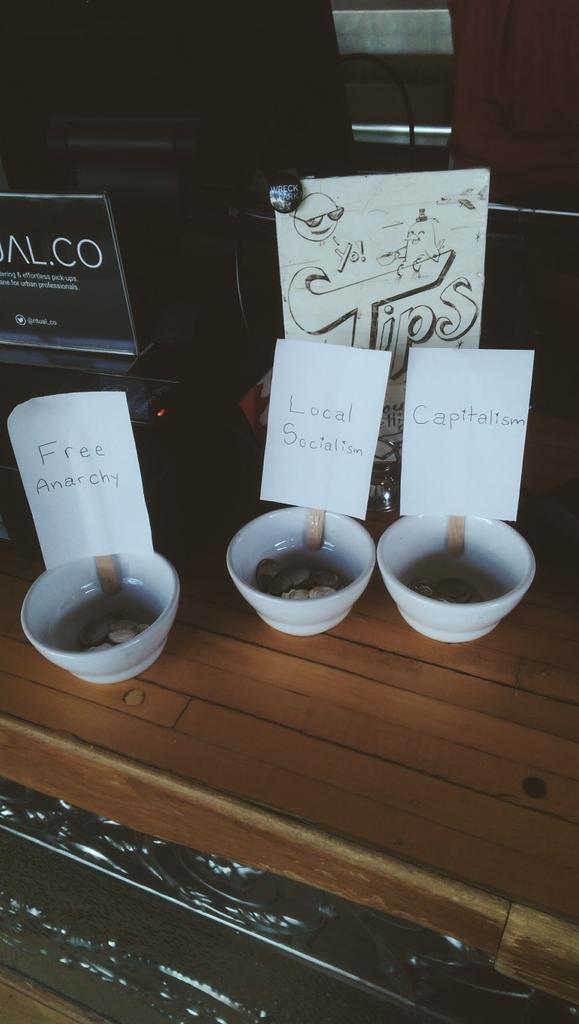 WRECK
UAL.CO
ering & effortless pick-ups.
ane for urban professionals.
@ritual_co
Yo!
Tips
Free
Anarchy
Local
Socialism
Capitalism